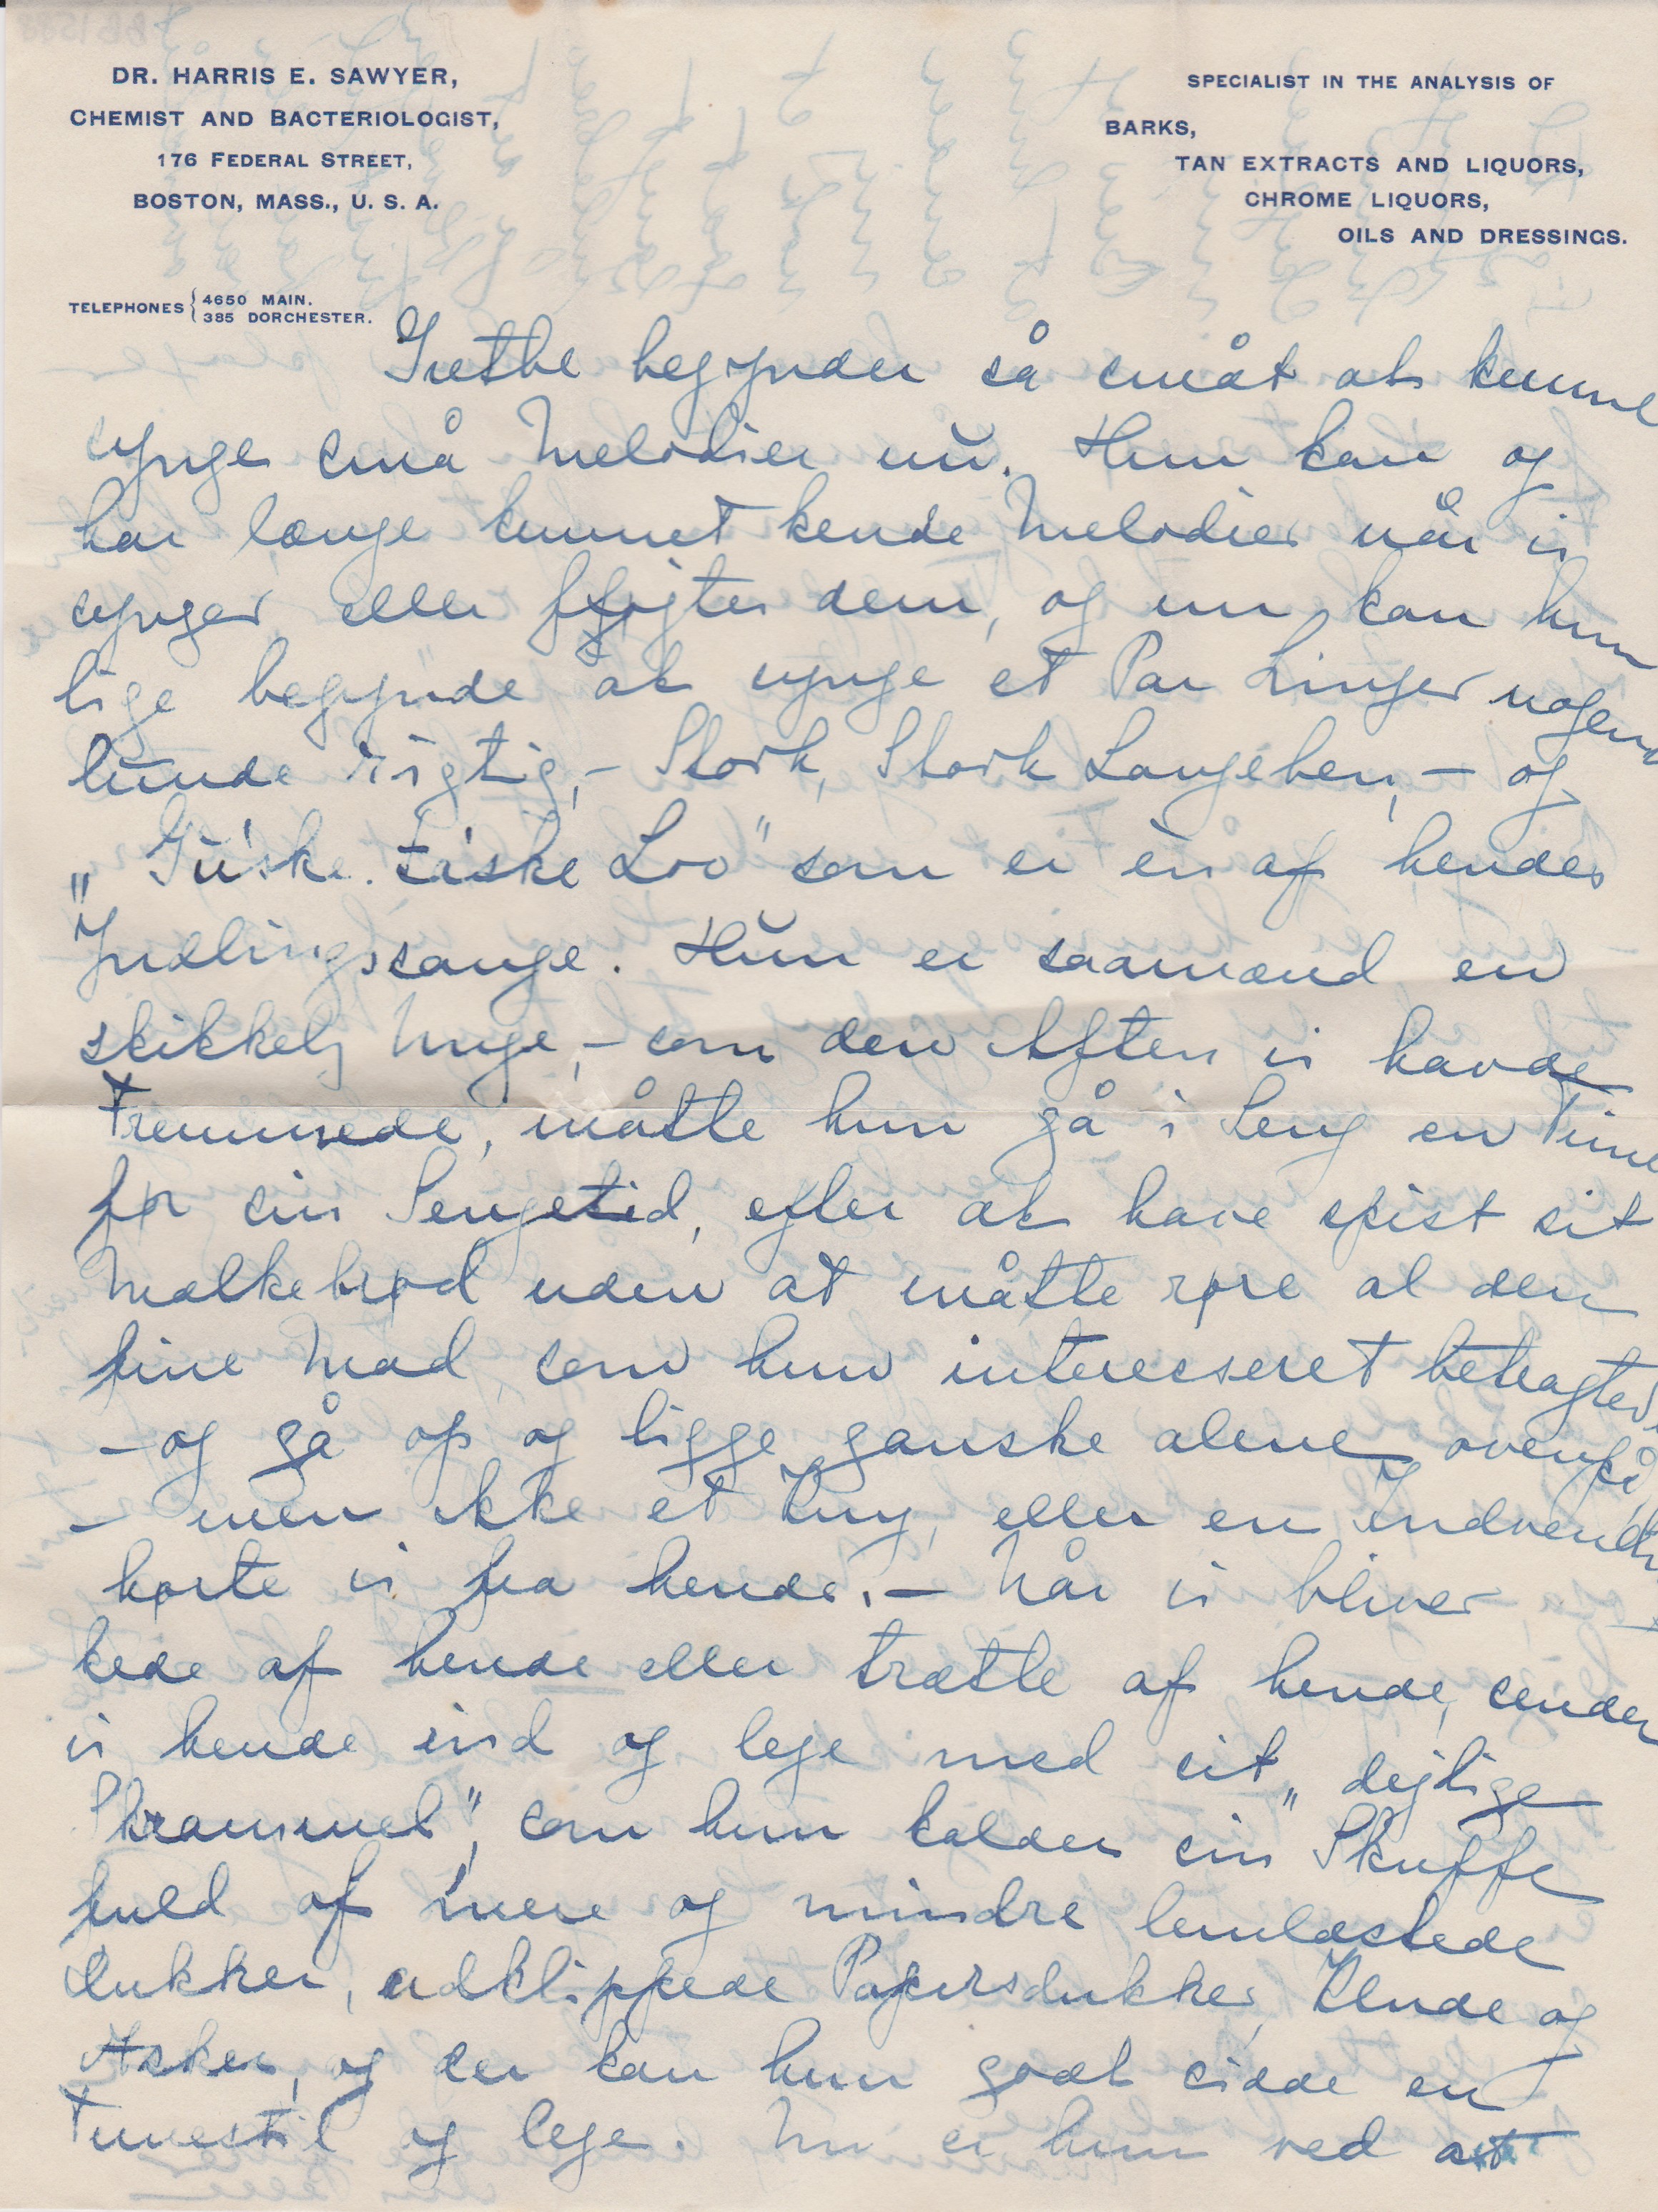 DR. HARRIS E. SAWYER,
CHEMIST AND BACTERIOLOGIST,
176 FEDERAL STREET,
BOSTON, MASS., U. S. A.
SPECIALIST IN THE ANALYSIS OF
BARKS,
TAN EXTRACTS AND LIQUORS,
CHROME LIQUORS,
OILS AND DRESSINGS.
TELEPHONES { 4650 MAIN.
385 DORCHESTER.
Grethe begynder så småt at kunne
synge små Melodier nu. Hun kan og
har længe kunnet kende Melodier når vi
synger eller fløjter dem, og nu kan hun
lige begynde at synge et Par Linjer nogen-
lunde rigtig, - Stork, Stork Langeben, - og
„ Giske Loo" som er èn af hendes
Yndlingssange. Hun er saamænd en
skikkelig Unge, - som den Aften vi havde
Fremmede, måtte hun gå i Seng en Time
før sin Sengetid, efter at have spist sit
Mælkebrød uden at måtte røre al den
fine Mad, som hun interesseret betragtede,
- og gå op og ligge ganske alene ovenpå,
- men ikke et Kny, eller en Indvending
hørte vi fra hende. - Når vi bliver
kede af hende eller trætte af hende, sender
vi hende ind og lege med sit „dejlige
Skrammel", som hun kalder sin Skuffe
fuld af mere og mindre lemlæstede
Dukker, udklippede Papirsdukker, Klude og
Æsker, og der kan hun godt sidde en
Timestid og lege. Nu er hun ved at